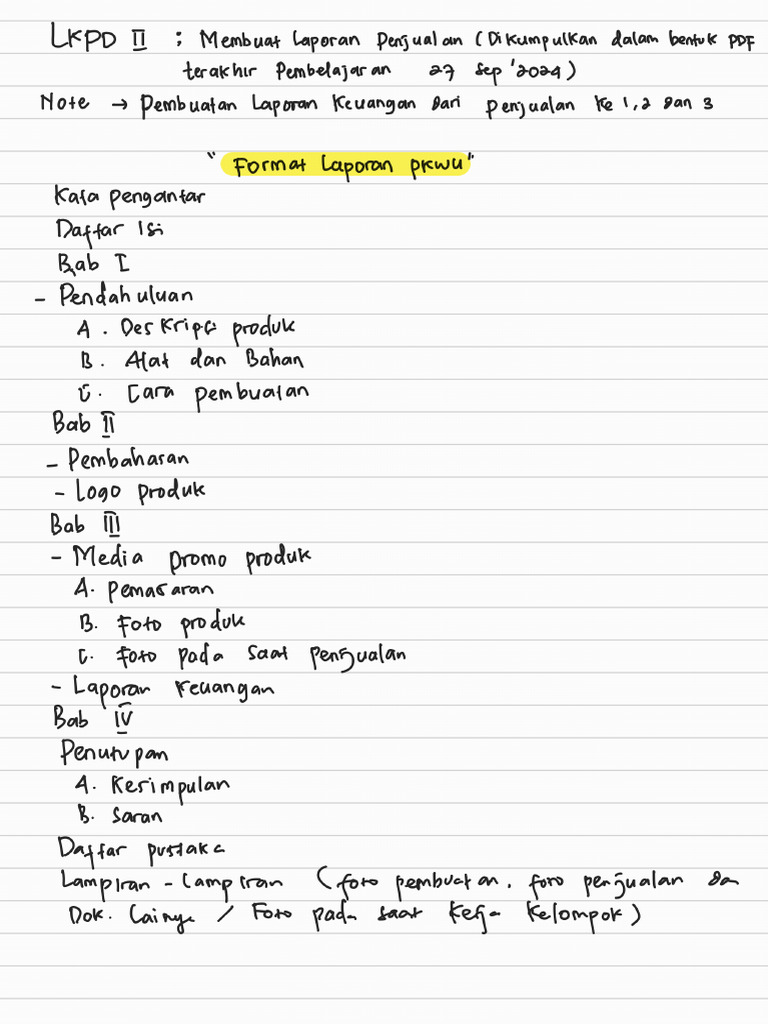 LKPD II : Membuat Laporan Penjualan (Dikumpulkan dalam bentuk PDF
terakhir Pembelajaran 27 Sep '2024)
Note → Pembuatan Laporan Keuangan dari penjualan ke 1, 2 dan 3
"Format Laporan PKWU"
Kata pengantar
Daftar Isi
Bab I
- Pendahuluan
A. Deskripsi produk
B. Alat dan Bahan
C. Cara pembuatan
Bab II
- Pembahasan
- Logo produk
Bab III
- Media promo produk
A. Pemasaran
B. Foto produk
C. Foto pada saat penjualan
- Laporan Keuangan
Bab IV
Penutupan
A. Kesimpulan
B. Saran
Daftar pustaka
Lampiran - Lampiran (foto pembuatan, foto penjualan dan
Dok. Lainya / Foto pada saat Kerja Kelompok)